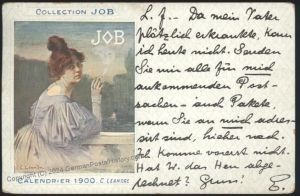 COLLECTION JOB
JOB
CALENDRIER 1900. C LEANDRE
L. J. — Da mein Vater
plötzlich erkrankte, kann
ich heute nicht. Senden
Sie mir alle für mich
ankommenden Post-
sachen – und Pakete,
wenn sie an mich adres-
siert sind, hieher nach.
Ich komme vorerst nicht.
Hat W. das Heu abge-
rechnet? Gruss!